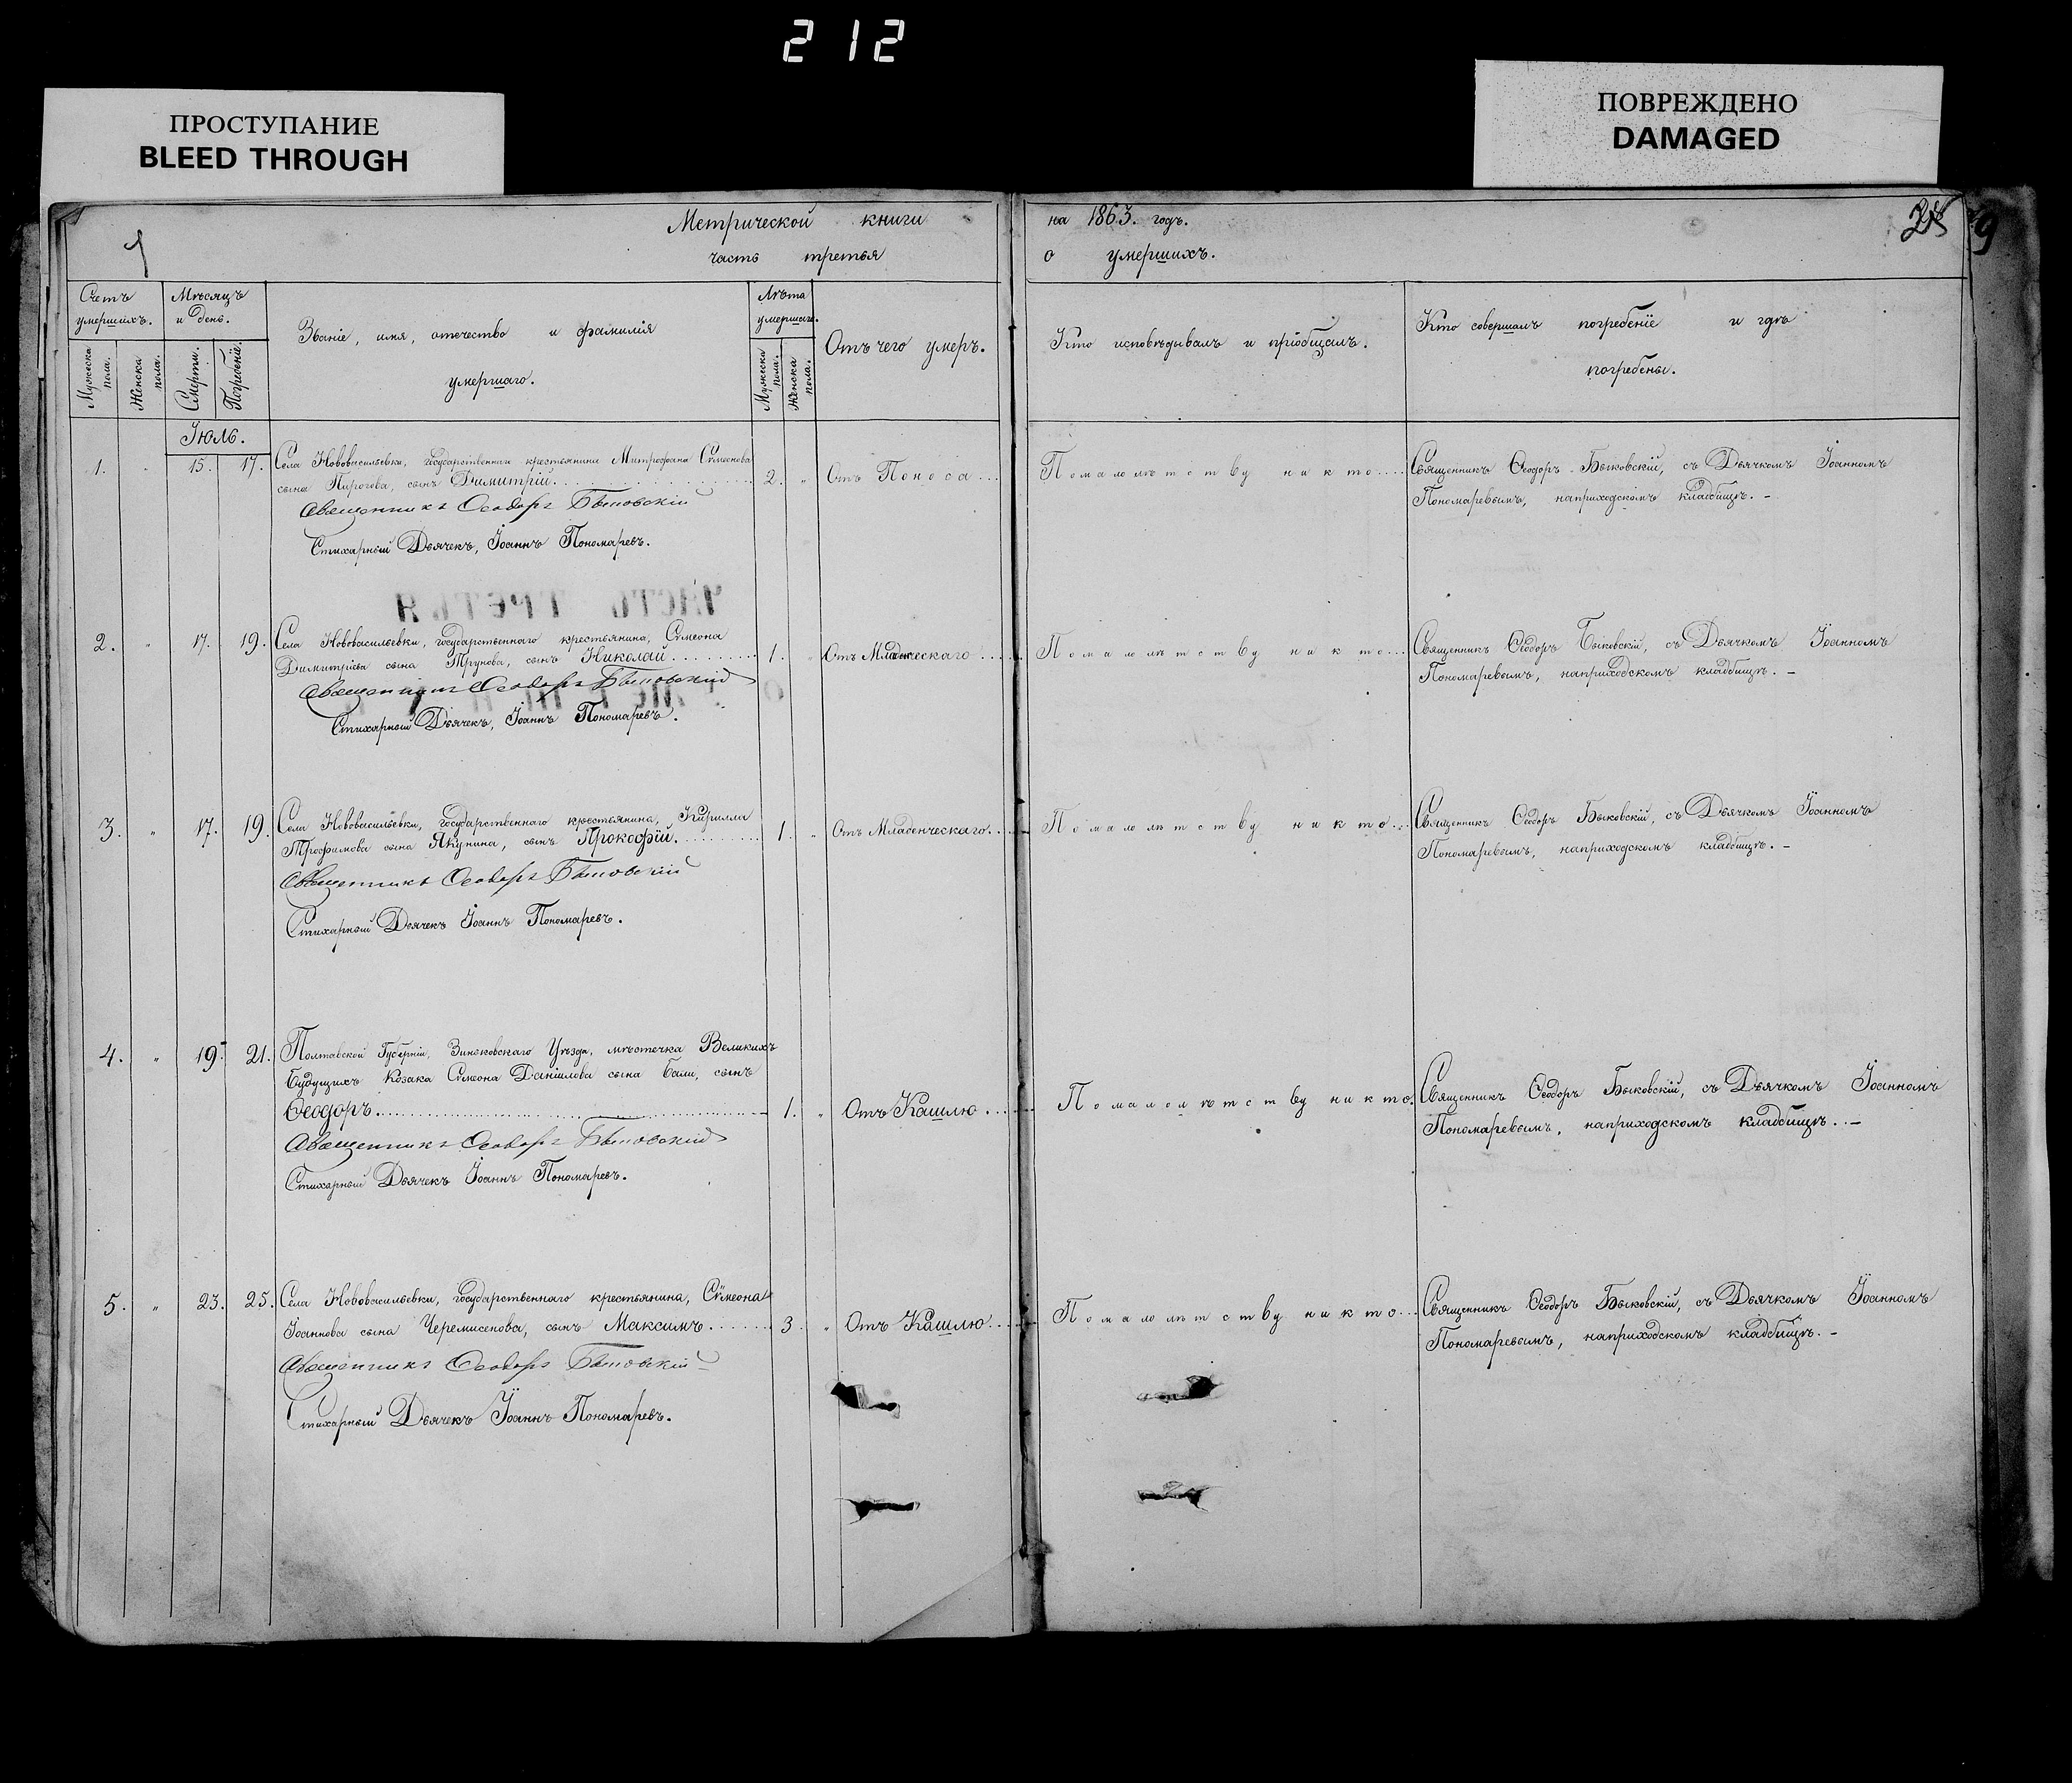 212
ПРОСТУПАНИЕ
BLEED THROUGH
ПОВРЕЖДЕНО
DAMAGED
Метрической книги на 1863. годъ.
часть третья о умершихъ.
9
Счетъ умершихъ.
Мужеска пола.
Женска пола.
Мѣсяцъ и день.
Смерти.
Погребенія.
Званіе, имя, отечество и фамилія
умершаго.
Лѣта умершаго.
Мужеска пола.
Женска пола.
Отъ чего умеръ.
Кто исповѣдывалъ и пріобщалъ.
Кто совершалъ погребеніе и гдѣ
погребены.
Іюль.
1. " 15. 17. Села Нововасильевки, государственнаго крестьянина Митрофана Сѵмеонова
сына Пирогова, сынъ Димитрій. 2. " Отъ Поноса... По малолѣтству никто....
Священникъ Ѳеодоръ Быковскій, съ Дьячкомъ Іоанномъ
Пономаревымъ, наприходскомъ кладбищѣ. -
Священникъ Ѳеодоръ Быковскій
Стихарный Дьячекъ, Іоаннъ Пономаревъ.
ЧАСТЬ ТРЕТЬЯ
2. " 17. 19. Села Нововасильевки, государственнаго крестьянина, Сѵмеона
Димитріева сына Трунова, сынъ Николай. 1. " Отъ Младенческаго... По малолѣтству никто...
Священникъ Ѳеодоръ Быковскій, съ Дьячкомъ Іоанномъ
Пономаревымъ, наприходскомъ кладбищѣ. -
Священникъ Ѳеодоръ Быковскій
Стихарный Дьячекъ, Іоаннъ Пономаревъ.
3. " 17. 19. Села Нововасильевки, государственнаго крестьянина, Кирилла
Трофимова сына Якунина, сынъ Прокофій. 1. " Отъ Младенческаго... По малолѣтству никто...
Священникъ Ѳеодоръ Быковскій, съ Дьячкомъ Іоанномъ
Пономаревымъ, наприходскомъ кладбищѣ. -
Священникъ Ѳеодоръ Быковскій
Стихарный Дьячекъ Іоаннъ Пономаревъ.
4. " 19. 21. Полтавской Губерніи, Зинковскаго Уѣзда, мѣстечка Великихъ
Будущихъ Козака Сѵмеона Даніилова сына Бали, сынъ
Ѳеодоръ... 1. " Отъ Кашлю... По малолѣтству никто.
Священникъ Ѳеодоръ Быковскій, съ Дьячкомъ Іоанномъ
Пономаревымъ, наприходскомъ кладбищѣ. -
Священникъ Ѳеодоръ Быковскій
Стихарный Дьячекъ Іоаннъ Пономаревъ.
5. " 23. 25. Села Нововасильевки, государственнаго крестьянина, Сѵмеона
Іоаннова сына Черемисенова, сынъ Максимъ. 3. " Отъ Кашлю... По малолѣтству никто...
Священникъ Ѳеодоръ Быковскій, съ Дьячкомъ Іоанномъ
Пономаревымъ, наприходскомъ кладбищѣ. -
Священникъ Ѳеодоръ Быковскій
Стихарный Дьячекъ Іоаннъ Пономаревъ.